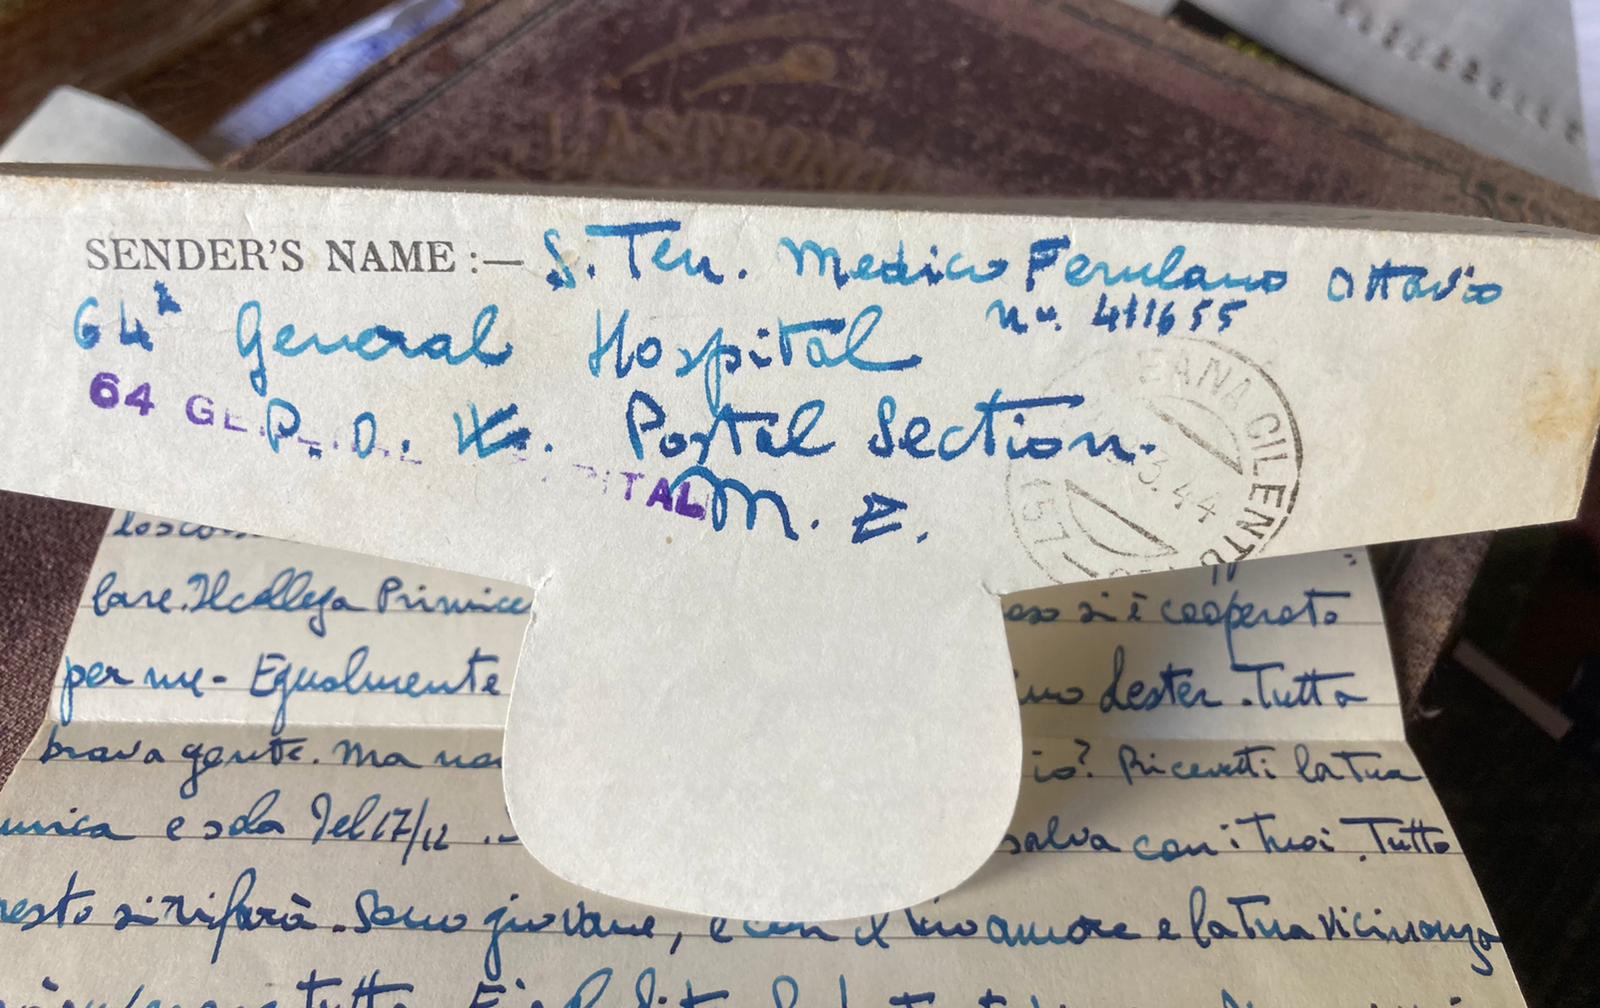 L'ASTRONO
SENDER'S NAME :— S. Ten. Medico Ferulano Ottavio
64ª General Hospital nu. 411655
64 GENERAL HOSPITAL
P. O. W. Postal Section.
M. E.
EANA CILENTO
3.44
(57
lare. Il collega Primice
oso si è cooperato
per me - Egualmente
imo Lester. Tutta
brava gente. Ma non
io? Ricevesti la tua
unica e sola del 17/12 .-
salva con i tuoi. Tutto
resto si rifarà. Sono giovane, e con il tuo amore e la tua vicinanza
tutto.